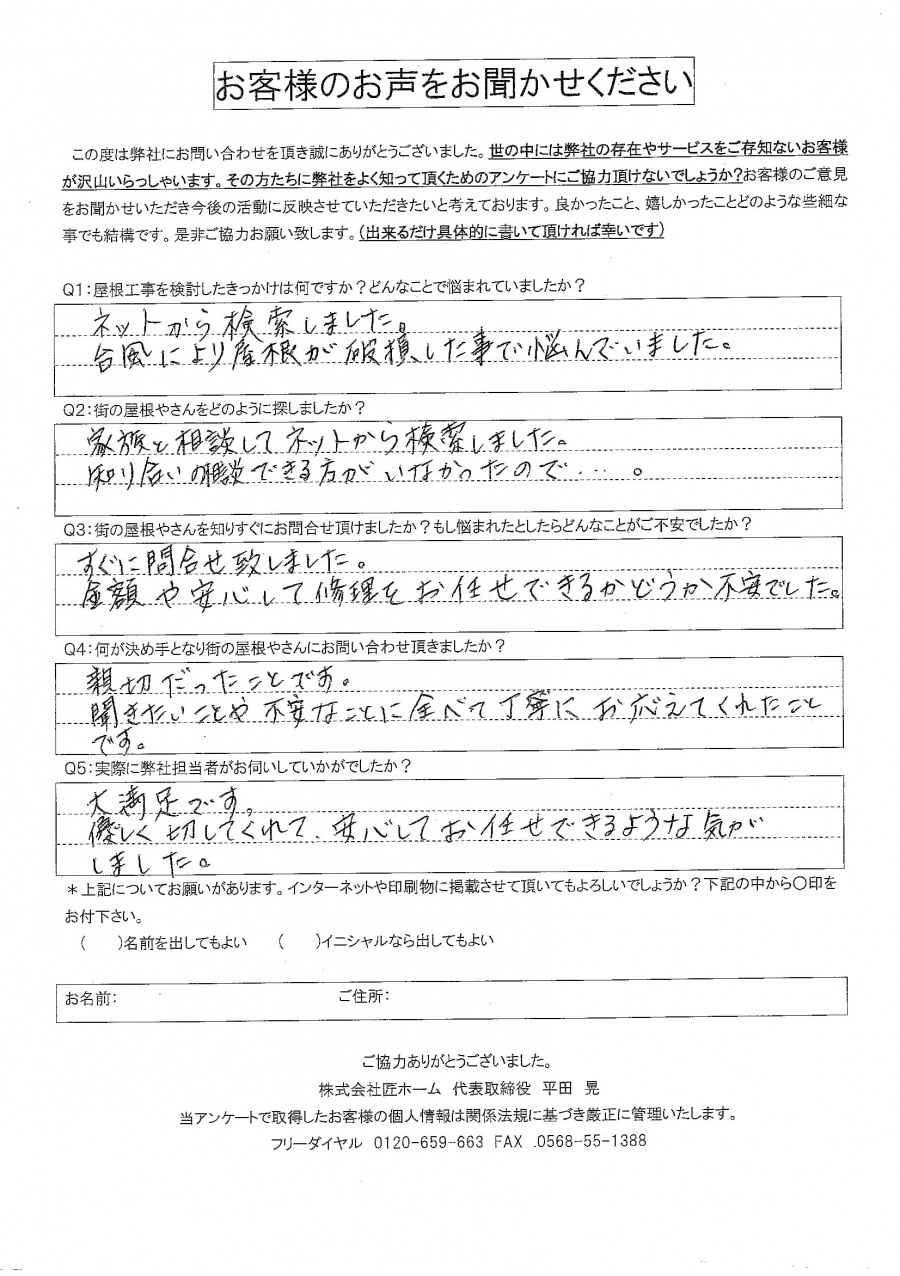 お客様のお声をお聞かせください
この度は弊社にお問い合わせを頂き誠にありがとうございました。世の中には弊社の存在やサービスをご存知ないお客様
が沢山いらっしゃいます。その方たちに弊社をよく知って頂くためのアンケートにご協力頂けないでしょうか?お客様のご意見
をお聞かせいただき今後の活動に反映させていただきたいと考えております。良かったこと、嬉しかったことどのような些細な
事でも結構です。是非ご協力お願い致します。(出来るだけ具体的に書いて頂ければ幸いです)
Q1:屋根工事を検討したきっかけは何ですか?どんなことで悩まれていましたか?
ネットから検索しました。
台風により屋根が破損した事で悩んでいました。
Q2:街の屋根やさんをどのように探しましたか?
家族と相談してネットから検索しました。
知り合いの相談できる方がいなかったので・・・。
Q3:街の屋根やさんを知りすぐにお問合せ頂けましたか?もし悩まれたとしたらどんなことがご不安でしたか?
すぐに問合せ致しました。
金額や安心して修理をお任せできるかどうか不安でした。
Q4:何が決め手となり街の屋根やさんにお問い合わせ頂きましたか?
親切だったことです。
聞きたいことや不安なことに全べて丁寧にお応えてくれたこと
です。
Q5:実際に弊社担当者がお伺いしていかがでしたか?
大満足です。
優しく切してくれて、安心してお任せできるような気が
しました。
*上記についてお願いがあります。インターネットや印刷物に掲載させて頂いてもよろしいでしょうか?下記の中から〇印を
お付下さい。
( )名前を出してもよい ( )イニシャルなら出してもよい
お名前: ご住所:
ご協力ありがとうございました。
株式会社匠ホーム 代表取締役 平田 晃
当アンケートで取得したお客様の個人情報は関係法規に基づき厳正に管理いたします。
フリーダイヤル 0120-659-663 FAX .0568-55-1388